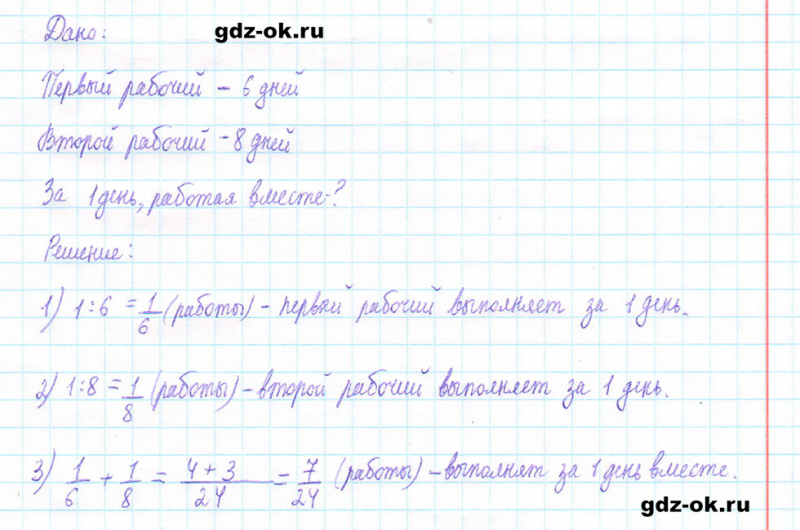 Дано: gdz-ok.ru
Первый рабочий – 6 дней
Второй рабочий – 8 дней
За 1 день, работая вместе-?
Решение:
1) 1:6 = 1/6 (работы) – первый рабочий выполняет за 1 день.
2) 1:8 = 1/8 (работы) – второй рабочий выполняет за 1 день.
3) 1/6 + 1/8 = 4+3/24 = 7/24 (работы) – выполнят за 1 день вместе.
gdz-ok.ru